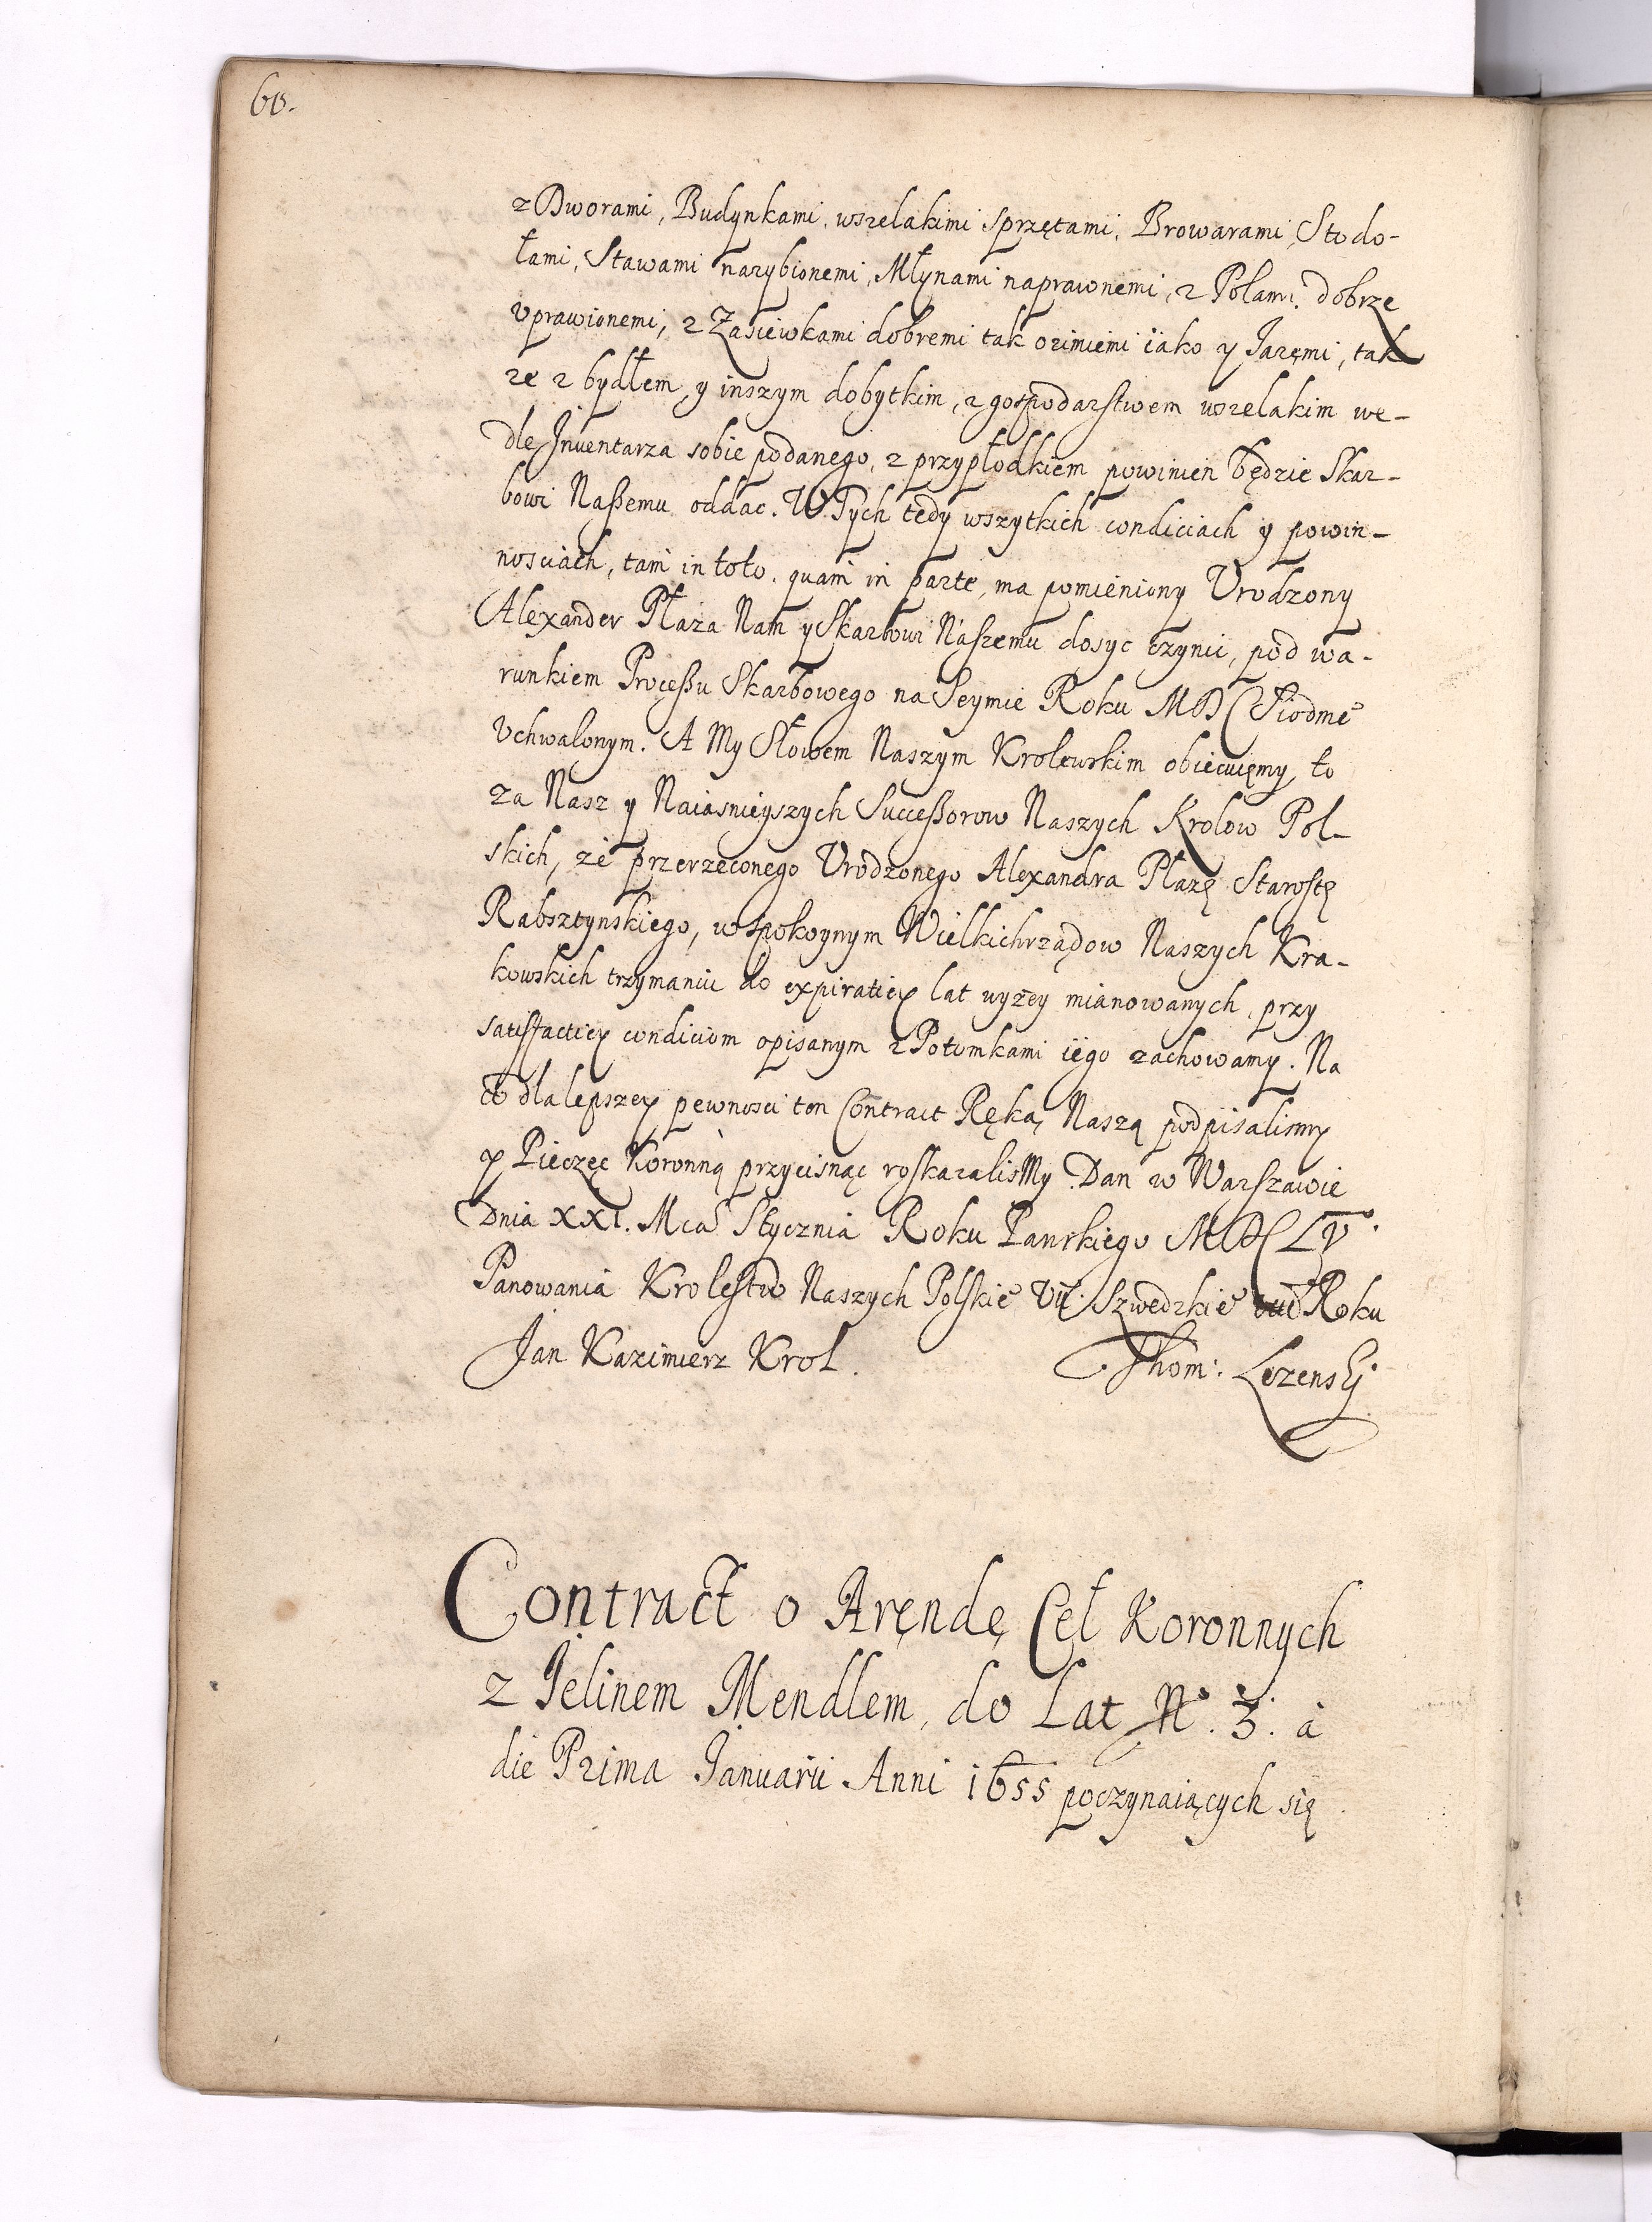 60.
z Dworami, Budynkami, wszelakimi sprzętami, Browarami, Stodo-
łami, Stawami narybionemi, Młynami naprawnemi, z Polami dobrze
vprawionemi, z Zasiewkami dobremi tak ozimiemi iako y Jaręmi, tak
ze z bydłem y inszym dobytkim, z gospodarstwem wszelakim we-
dle Jnventarza sobie podanego, z przypłodkiem powinien będzie Skar-
bowi Naßemu oddac. W Tych tedy wszytkich condiciach y powin-
nosciach, tam in toto, quam in parte, ma pomieniony Vrodzony
Alexander Płaza Nam y Skarbowi Naszemu dosyc czynic, pod wa-
runkiem Proceßu Skarbowego na Seymie Roku MDC Siodme°
Vchwalonym. A My Słowem Naszym Krolewskim obiecuięmy to
za Nasz y Naiasnieyszych Succeßorow Naszych Krolow Pol-
skich, ze przerzeconego Vrodzonego Alexandra Płazę Starostę
Rabsztynskiego, w spokoynym Wielkichrządow Naszych Kra-
kowskich trzymaniu do expiratiey lat wyzey mianowanych, przy
satisfactiey condiciom opisanym z Potomkami iego zachowamy. Na
to dla lepszey pewnosci ten Contract Ręką Naszą podpisalismy
y Pieczęc Koronną przycisnąc roskazalismy. Dan w Warszawie
Dnia XXI. Mca Stycznia Roku Panskiego MDCLV.
Panowania Krolestw Naszych Polskie° vii. Szwedzkie° Roku
Jan Kazimierz Krol. Thom: Lezenskj
Contract o Aręndę Ceł Koronnych
z Jelinem Mendlem, do Lat N° 3. à
die Prima Januarii Anni 1655 poczynaiących się